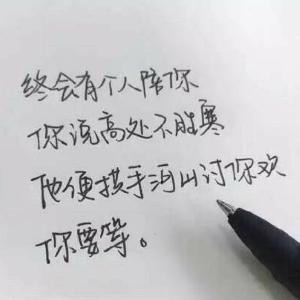 终会有个人陪你
你说高处不胜寒
他便拱手河山讨你欢
你要等。